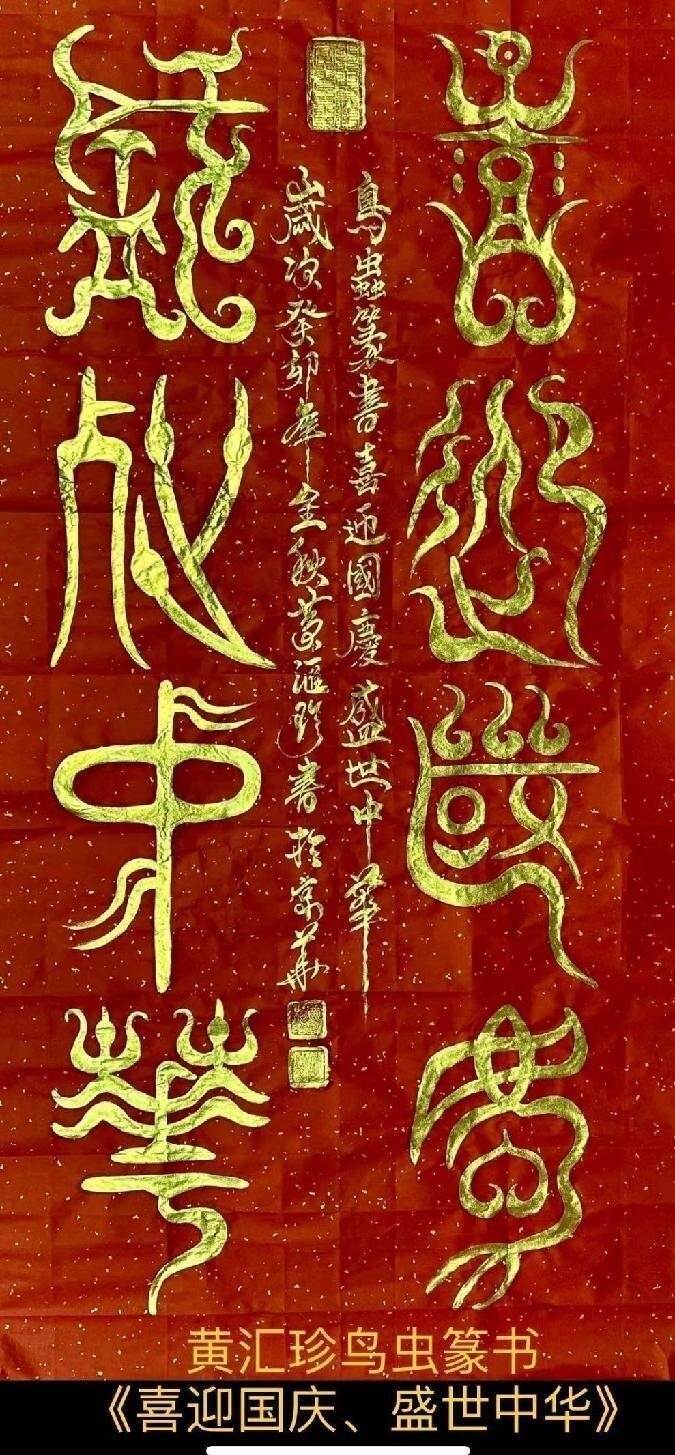 喜迎國慶
鳥蟲篆書喜迎國慶盛世中華
歲次癸卯年金秋黃滙珍書於京華
盛世中華
黄汇珍鸟虫篆书
《喜迎国庆、盛世中华》